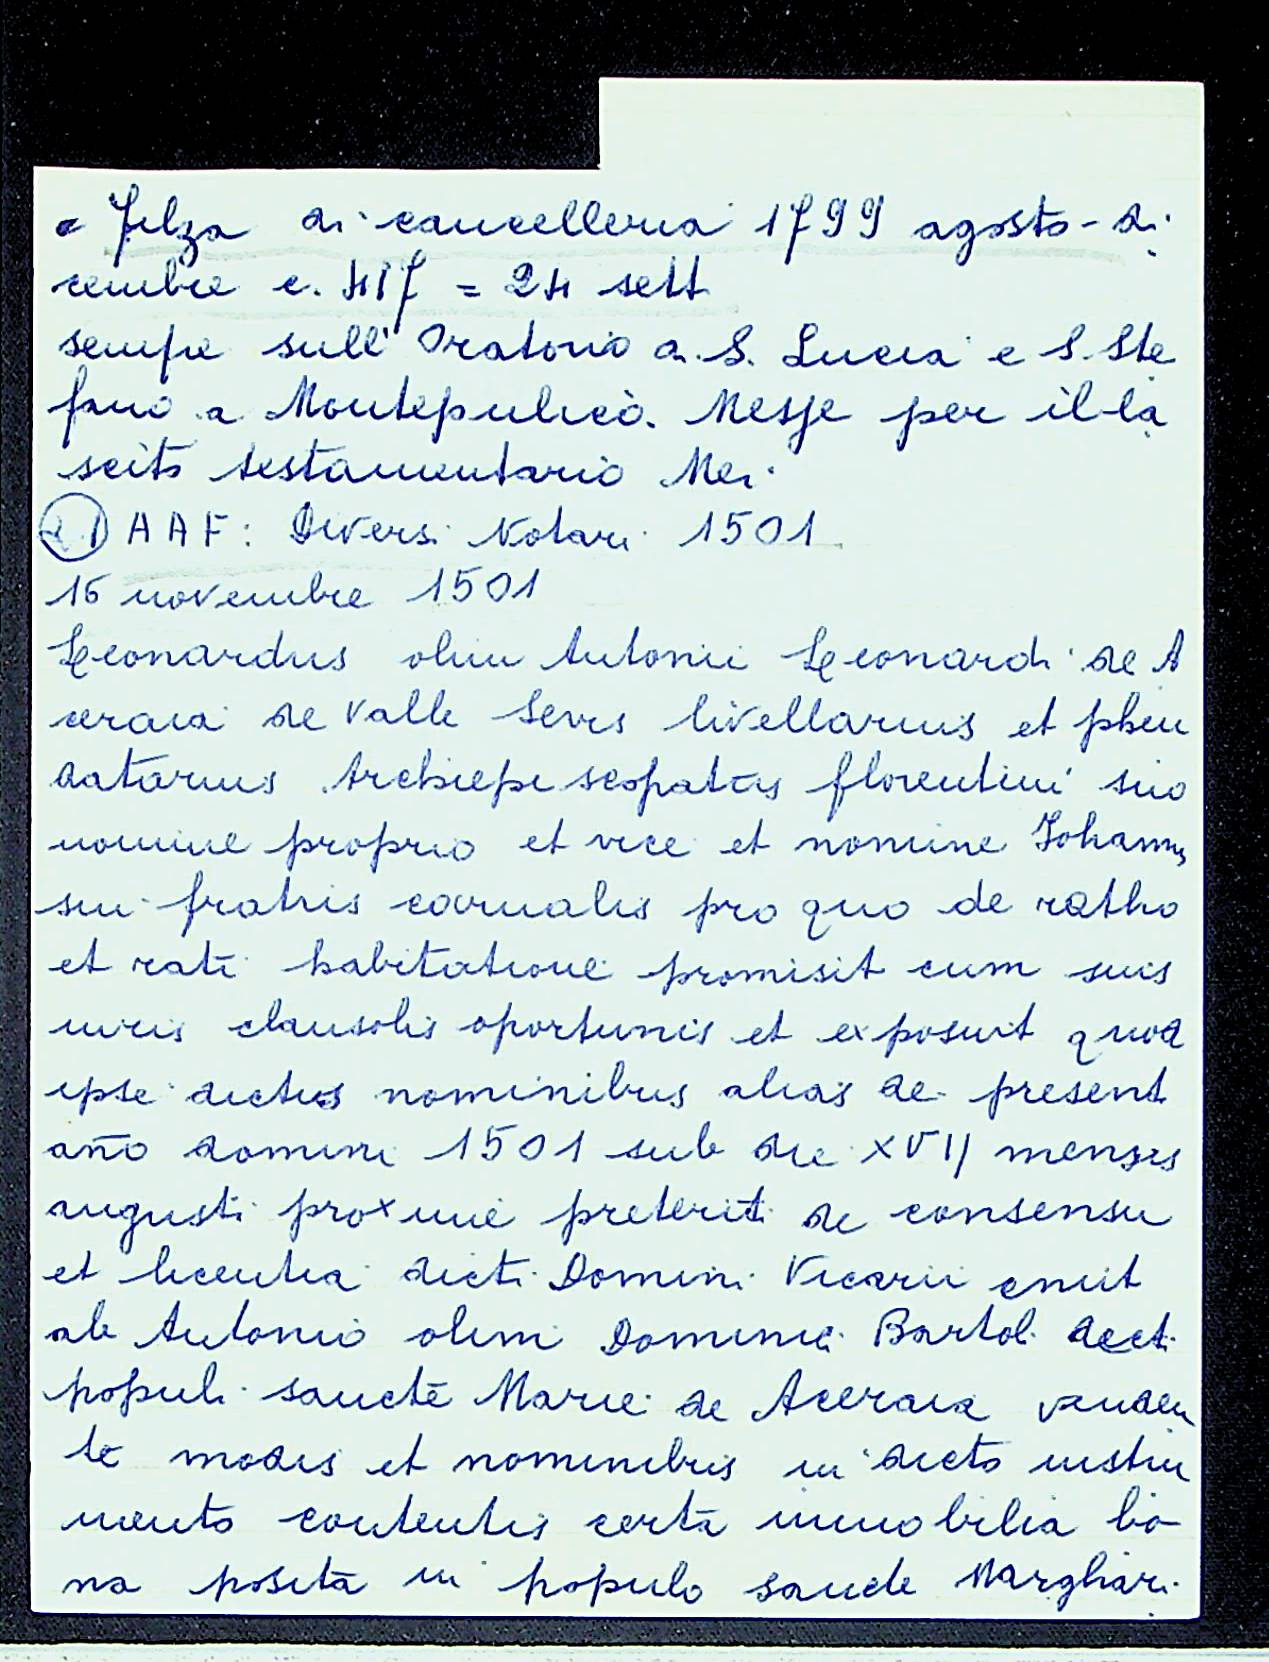 = Filza di cancelleria 1799 agosto-di
cembre c. 417 = 24 sett
sempre sull' Oratorio di S. Lucia e S. Ste
fano a Montepulico. Messe per il la
scito testamentario Mei.
AAF: Diversi Notari 1501
16 novembre 1501
Leonardus olim Antonii Leonardi de A
ceraia de Valle Sevis livellarius et pheu
datarius Archiepiscopatus florentini suo
nomine proprio et vice et nomine Johannis
sui fratris carnalis pro quo de ratho
et rati habitatione promisit cum suis
iuris clausolis oportunis et exposuit quod
ipse dictis nominibus alias de present
año domini 1501 sub die XVII mensis
augusti proxime preteriti de consensu
et licentia dicti Domini Vicarii emit
ab Antonio olim Dominici Bartol. dicti
populi sancte Marie de Aceraia venden
te modis et nominibus in dicto instru
mento contentis certa immobilia bo-
na posita in populo sancte Marghari